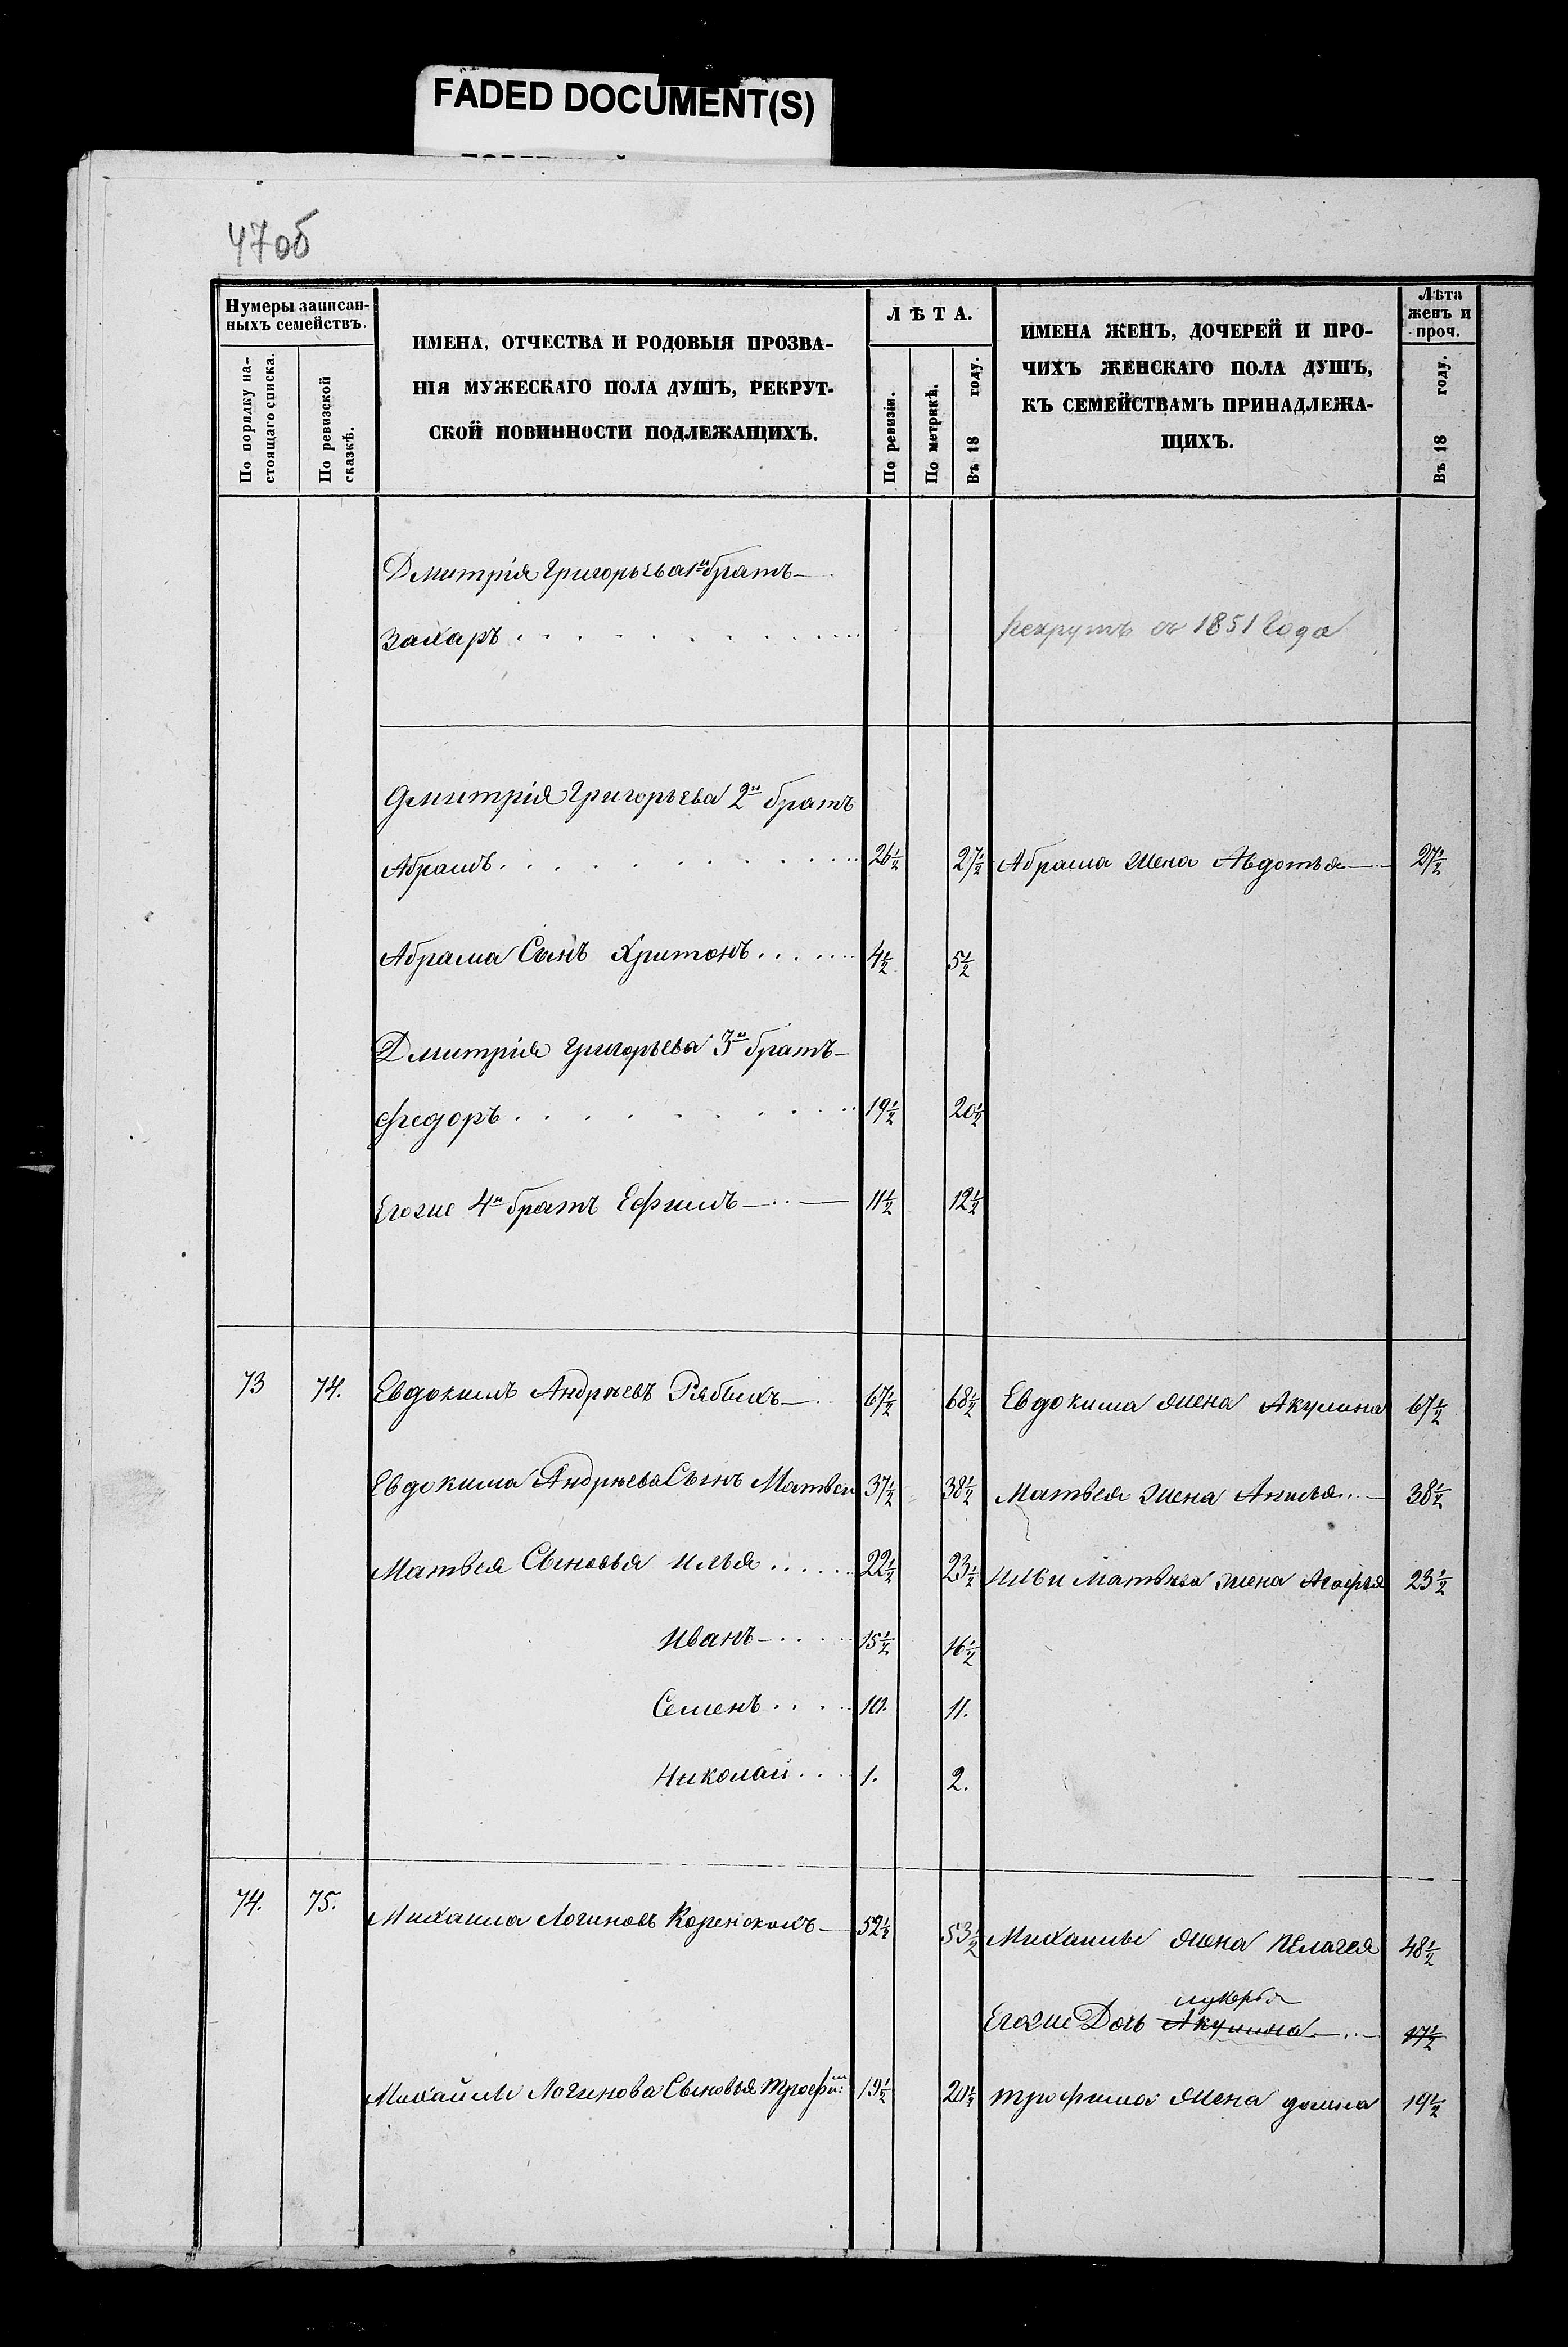 FADED DOCUMENT(S)
47об
Нумеры записан-
ныхъ семействъ.
По порядку на-
стоящаго списка.
По ревизской
сказкѣ.
ИМЕНА, ОТЧЕСТВА И РОДОВЫЯ ПРОЗВА-
НІЯ МУЖЕСКАГО ПОЛА ДУШЪ, РЕКРУТ-
СКОЙ ПОВИННОСТИ ПОДЛЕЖАЩИХЪ.
ЛѢТА.
По ревизіи.
По метрикѣ.
Въ 18 году.
ИМЕНА ЖЕНЪ, ДОЧЕРЕЙ И ПРО-
ЧИХЪ ЖЕНСКАГО ПОЛА ДУШЪ,
КЪ СЕМЕЙСТВАМЪ ПРИНАДЛЕЖА-
ЩИХЪ.
Лѣта
женъ и
проч.
Въ 18 году.
Дмитрія Григорьева 1й братъ
Захаръ рекрутъ съ 1851 Года
Дмитрія Григорьева 2й братъ
Абрамъ 26½ 27½ Абрама жена Авдотья 27½
Абрама Сынъ Хритонъ 4½ 5½
Дмитрія Григорьева 3й братъ
Федоръ 19½ 20½
Егоже 4й братъ Ефимъ 11½ 12½
73 74. Евдокимъ Андрѣевъ 67½ 68½ Евдокима жена Акулина 67½
Евдокима Андрѣева Сынъ Матвеи 37½ 38½ Матвея жена 38½
Матвея Сыновья Илья 22½ 23½ Ильи Матвѣева жена Агафья 23½
Иванъ 15½ 16½
Семенъ 10. 11.
Николай 1. 2.
74. 75. Михаила Логиновъ 52½ 53½ Михаилы жена Пелагея 48½
лукерья
Егоже Дочь Акулина 17½
Михайлы Логинова Сыновья Трофимъ 19½ 20½ Трофима жена домна 19½